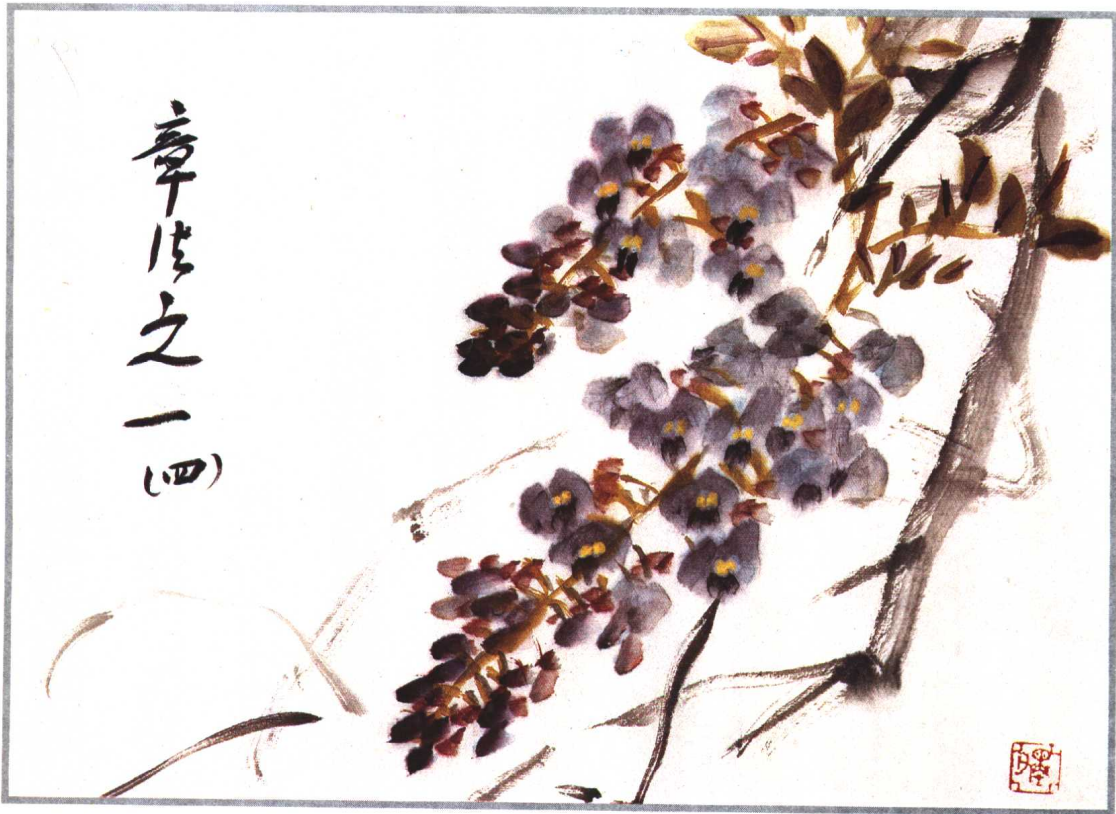 章法之一
(四)